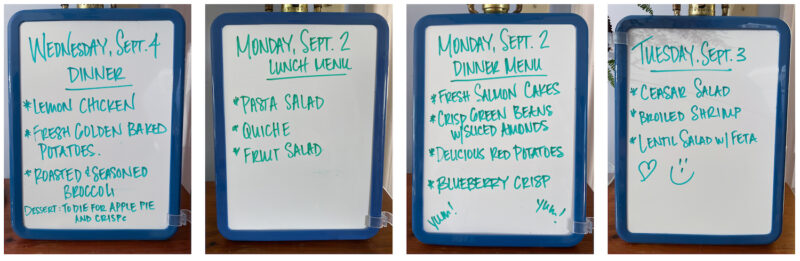 WEDNESDAY, SEPT. 4
DINNER
* LEMON CHICKEN
* FRESH GOLDEN BAKED
POTATOES.
* ROASTED & SEASONED
BROCCOLI
DESSERT: TO DIE FOR APPLE PIE
AND CRISPS
MONDAY, SEPT. 2
LUNCH MENU
* PASTA SALAD
* QUICHE
* FRUIT SALAD
MONDAY, SEPT. 2
DINNER MENU
* FRESH SALMON CAKES
* CRISP GREEN BEANS
W/SLICED AMONDS
* DELICIOUS RED POTATOES
* BLUEBERRY CRISP
yum!
yum!
TUESDAY. SEPT. 3
* CEASAR SALAD
* BROILED SHRIMP
* LENTIL SALAD W/ FETA